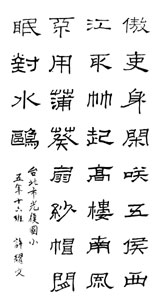 傲吏身閑笑五侯西
江取竹起高樓南風
不用蒲葵扇紗帽閑
眠對水鷗
台北市光復國小
五年十六班 許耀文